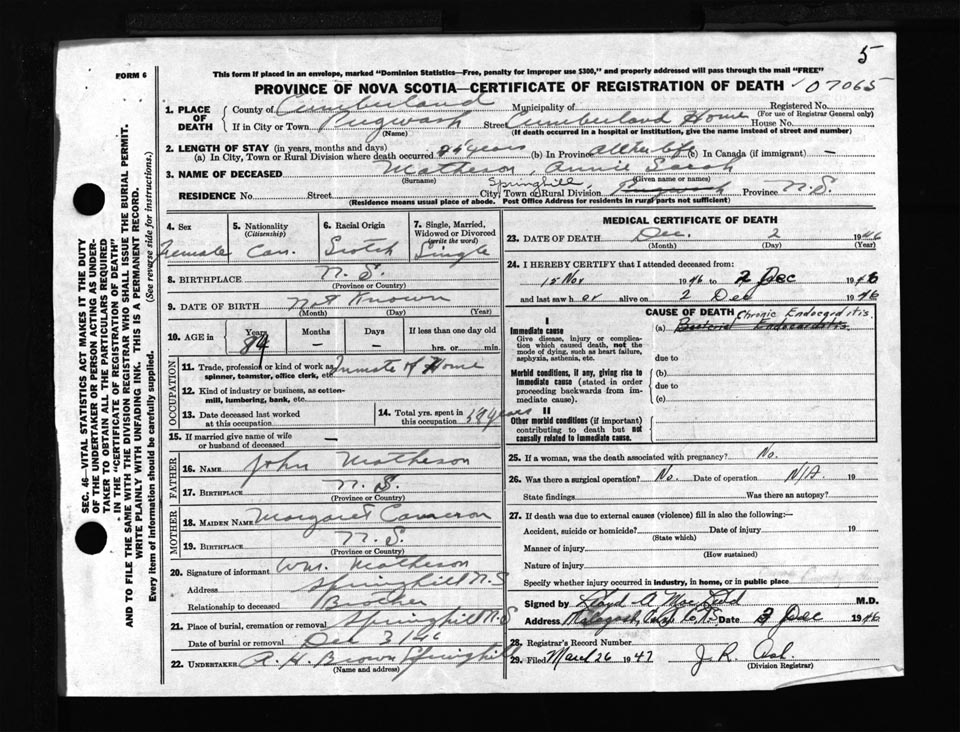 5
FORM 6
This form if placed in an envelope, marked "Dominion Statistics—Free, penalty for improper use $300," and properly addressed will pass through the mail "FREE"
PROVINCE OF NOVA SCOTIA—CERTIFICATE OF REGISTRATION OF DEATH 07065
SEC. 46—VITAL STATISTICS ACT MAKES IT THE DUTY
OF THE UNDERTAKER OR PERSON ACTING AS UNDER-
TAKER TO OBTAIN ALL THE PARTICULARS REQUIRED
IN THE "CERTIFICATE OF REGISTRATION OF DEATH"
AND TO FILE THE SAME WITH THE DIVISION REGISTRAR WHO SHALL ISSUE THE BURIAL PERMIT.
WRITE PLAINLY WITH UNFADING INK. THIS IS A PERMANENT RECORD.
Every item of information should be carefully supplied. (See reverse side for instructions.)
1. PLACE OF DEATH County of Cumberland Municipality of Registered No.
(For use of Registrar General only)
If in City or Town Pugwash Street Cumberland Home House No.
(Name) (If death occurred in a hospital or institution, give the name instead of street and number)
2. LENGTH OF STAY (in years, months and days)
(a) In City, Town or Rural Division where death occurred years (b) In Province All her life (c) In Canada (if immigrant) —
3. NAME OF DECEASED Matheson, Annie Sarah
(Surname) (Given name or names)
RESIDENCE No. Street City, Town or Rural Division Springhill Pugwash Province N.S.
(Residence means usual place of abode. Post Office Address for residents in rural parts not sufficient)
4. Sex Female
5. Nationality (Citizenship) Can.
6. Racial Origin Scotch
7. Single, Married, Widowed or Divorced (write the word) Single
8. BIRTHPLACE N. S.
(Province or Country)
9. DATE OF BIRTH Not Known
(Month) (Day) (Year)
10. AGE in Years 84 Months — Days — If less than one day old hrs. or min.
OCCUPATION
11. Trade, profession or kind of work as spinner, teamster, office clerk, etc. Inmate of Home
12. Kind of industry or business, as cotton-mill, lumbering, bank, etc.
13. Date deceased last worked at this occupation
14. Total yrs. spent in this occupation years
15. If married give name of wife or husband of deceased —
FATHER
16. NAME John Matheson
17. BIRTHPLACE N. S.
(Province or Country)
MOTHER
18. MAIDEN NAME Margaret Cameron
19. BIRTHPLACE N. S.
(Province or Country)
20. Signature of informant Wm. Matheson
Address Springhill N.S
Relationship to deceased Brother
21. Place of burial, cremation or removal Springhill N.S
Date of burial or removal Dec 3/46
22. UNDERTAKER A. H. Brown Springhill
(Name and address)
MEDICAL CERTIFICATE OF DEATH
23. DATE OF DEATH Dec. 2 1946
(Month) (Day) (Year)
24. I HEREBY CERTIFY that I attended deceased from:
15 Nov 1946 to 2 Dec 1946
and last saw her alive on 2 Dec 1946
CAUSE OF DEATH Chronic Endocarditis.
I
Immediate cause (a) Bacterial Endocarditis
Give disease, injury or complication which caused death, not the mode of dying, such as heart failure, asphyxia, asthenia, etc.
due to
Morbid conditions, if any, giving rise to immediate cause (stated in order proceeding backwards from immediate cause).
(b)
due to
(c)
II
Other morbid conditions (if important) contributing to death but not causally related to immediate cause.
25. If a woman, was the death associated with pregnancy? No.
26. Was there a surgical operation? No. Date of operation N/A. 19
State findings Was there an autopsy?
27. If death was due to external causes (violence) fill in also the following:—
Accident, suicide or homicide? Date of injury 19
(State which)
Manner of injury
(How sustained)
Nature of injury
Specify whether injury occurred in industry, in home, or in public place
Signed by Lloyd A MacLeod M.D.
Address Malagash, Cumb. Co. N.S. Date 3 Dec 1946
28. Registrar's Record Number
29. Filed March 26 1947 J. R. Ash.
(Division Registrar)